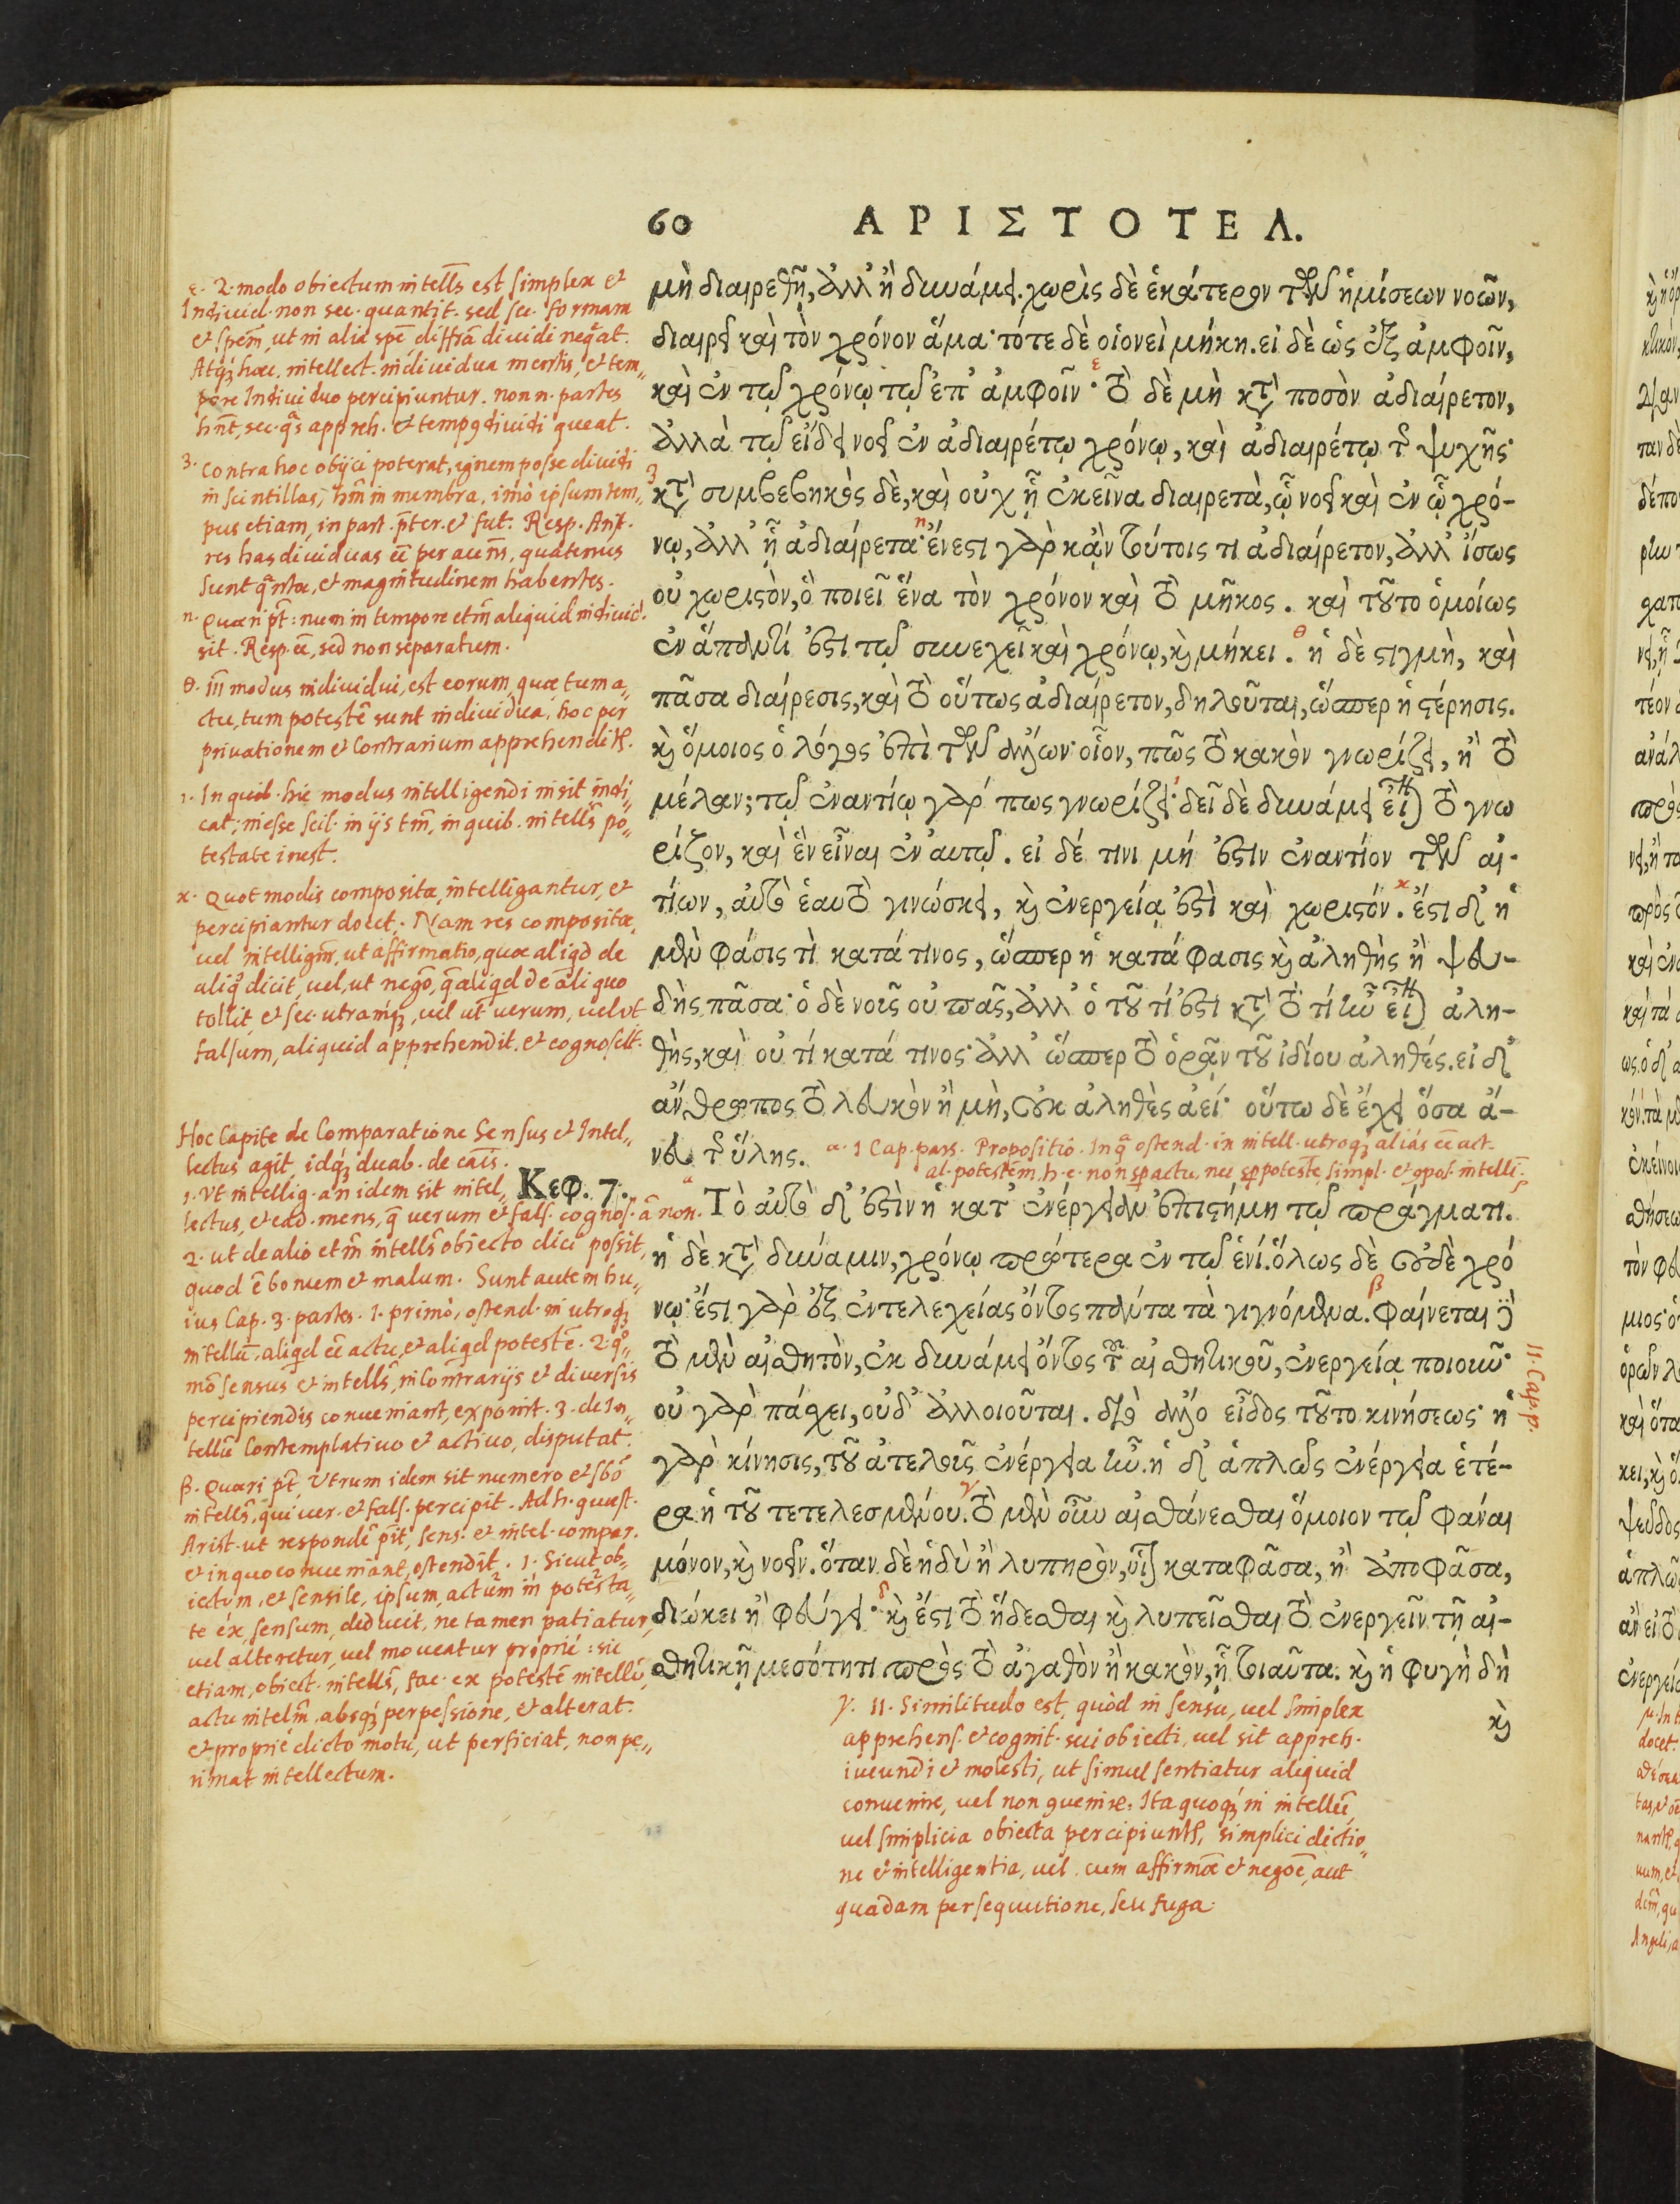 60 ΑΡΙΣΤΟΤΕΛ.
μὴ διαιρεθῇ, ἀλλ' ἢ δυνάμει. χωρὶς δὲ ἑκάτερον τῶν ἡμίσεων νοῶν,
διαιρεῖ καὶ τὸν χρόνον ἅμα· τότε δὲ οἱονεὶ μήκη. εἰ δὲ ὡς ἐξ ἀμφοῖν,
καὶ ἐν τῷ χρόνῳ τῷ ἐπ' ἀμφοῖν· τὸ δὲ μὴ κατὰ ποσὸν ἀδιαίρετον,
ἀλλὰ τῷ εἴδει νοεῖ ἐν ἀδιαιρέτῳ χρόνῳ, καὶ ἀδιαιρέτῳ τῆς ψυχῆς·
κατὰ συμβεβηκὸς δὲ, καὶ οὐχ ᾗ ἐκεῖνα διαιρετὰ, ᾧ νοεῖ καὶ ἐν ᾧ χρό-
νῳ, ἀλλ' ᾗ ἀδιαίρετα· ἔνεστι γὰρ κἀν τούτοις τι ἀδιαίρετον, ἀλλ' ἴσως
οὐ χωριστὸν, ὃ ποιεῖ ἕνα τὸν χρόνον καὶ τὸ μῆκος. καὶ τοῦτο ὁμοίως
ἐν ἅπαντί ἐστι τῷ συνεχεῖ καὶ χρόνῳ, καὶ μήκει. ἡ δὲ στιγμὴ, καὶ
πᾶσα διαίρεσις, καὶ τὸ οὕτως ἀδιαίρετον, δηλοῦται, ὥσπερ ἡ στέρησις.
καὶ ὅμοιος ὁ λόγος ἐπὶ τῶν ἄλλων· οἷον, πῶς τὸ κακὸν γνωρίζει, ἢ τὸ
μέλαν; τῷ ἐναντίῳ γάρ πως γνωρίζει· δεῖ δὲ δυνάμει εἶναι τὸ γνω
ρίζον, καὶ ἓν εἶναι ἐν αὐτῷ. εἰ δέ τινι μή ἐστιν ἐναντίον τῶν αἰ-
τίων, αὐτὸ ἑαυτὸ γινώσκει, καὶ ἐνεργείᾳ ἐστὶ καὶ χωριστόν. ἔστι δ' ἡ
μὲν φάσις τὶ κατά τινος, ὥσπερ ἡ κατάφασις καὶ ἀληθὴς ἢ ψευ-
δὴς πᾶσα· ὁ δὲ νοῦς οὐ πᾶς, ἀλλ' ὁ τοῦ τί ἐστι κατὰ τὸ τί ἦν εἶναι ἀλη-
θὴς, καὶ οὐ τί κατά τινος· ἀλλ' ὥσπερ τὸ ὁρᾶν τοῦ ἰδίου ἀληθές. εἰ δ'
ἄνθρωπος τὸ λευκὸν ἢ μὴ, οὐκ ἀληθὲς ἀεί· οὕτω δὲ ἔχει ὅσα ἄ-
νευ τῆς ὕλης.
Κεφ. 7.
Τὸ αὐτὸ δ' ἐστὶν ἡ κατ' ἐνέργειαν ἐπιστήμη τῷ πράγματι.
ἡ δὲ κατὰ δύναμιν, χρόνῳ προτέρα ἐν τῷ ἑνί. ὅλως δὲ οὐδὲ χρό
νῳ· ἔστι γὰρ ἐξ ἐντελεχείας ὄντος πάντα τὰ γιγνόμενα. φαίνεται δὲ
τὸ μὲν αἰσθητὸν, ἐκ δυνάμει ὄντος τοῦ αἰσθητικοῦ, ἐνεργείᾳ ποιοῦν·
οὐ γὰρ πάσχει, οὐδ' ἀλλοιοῦται. διὸ ἄλλο εἶδος τοῦτο κινήσεως· ἡ
γὰρ κίνησις, τοῦ ἀτελοῦς ἐνέργεια ἦν. ἡ δ' ἁπλῶς ἐνέργεια ἑτέ-
ρα ἡ τοῦ τετελεσμένου. τὸ μὲν οὖν αἰσθάνεσθαι ὅμοιον τῷ φάναι
μόνον, καὶ νοεῖν. ὅταν δὲ ἡδὺ ἢ λυπηρὸν, οἷον καταφᾶσα, ἢ ἀποφᾶσα,
διώκει ἢ φεύγει· καὶ ἔστι τὸ ἥδεσθαι καὶ λυπεῖσθαι τὸ ἐνεργεῖν τῇ αἰ-
σθητικῇ μεσότητι πρὸς τὸ ἀγαθὸν ἢ κακὸν, ᾗ τοιαῦτα. καὶ ἡ φυγὴ δὴ
καὶ
ε. 2. modo obiectum intells est simplex et
Indiuid. non sec. quantit. sed sec. formam
et spem, ut in alia spe diffra diuidi negat.
Atq; haec intellect. indiuidua mentis, et tem„
pore Indiuiduo percipiuntur. non n. partes
hnt, sec. qas appreh. et temp9 diuidi queat.
3. Contra hoc obijci poterat, ignem posse diuidi
in scintillas, hm in membra, imò ipsum tem„
pus etiam, in part. pter. et fut. Resp. Arist.
res has diuiduas ee per accns, quatenus
Sunt quantae, et magnitudinem habentes.
η. Quaeri pt: num in tempore etm aliquid indiuid.
sit. Resp. ee, sed non separatum.
θ. III modus indiuidui, est eorum, quae tum a„
ctu, tum poteste sunt indiuidua, hoc per
priuationem et Contrarium apprehendit.
ι. In quib. hic modus intelligendi insit indi„
cat; inesse scil. in ijs tm, in quib. intells po„
testate inest.
κ. Quot modis composita, intelligantur, et
percipiantur docet. Nam res compositae,
uel intelligunt, ut affirmatio, quae aliqd de
aliqo dicit, uel, ut nego, q aliqd de aliquo
tollit, et sec. utramq;, uel ut uerum, uel ut
falsum, aliquid apprehendit. et cognoscit.
Hoc Capite de Comparatione Sensus et Intel„
lectus agit, idq; duab. de cais.
1. Vt intellig. an idem sit intel„
lectus, et ead. mens, q uerum et fals. cognos. a non.
2. ut de alio etm intells obiecto dici possit,
quod e bonum et malum. Sunt autem hu„
ius Cap. 3. partes. 1. primò, ostend. in utroq;
intellu. aliqd ee actu, et aliqd poteste. 2. qo„
mo sensus et intells, in Contrarijs et diuersis
percipiendis conueniant, exponit. 3. de In„
tellu Contemplatiuo et actiuo, disputat.
β. Quaeri pt, Vtrum idem sit numero et sbo
intells, qui uer. et fals. percipit. Ad h. quaest.
Arist. ut responde pit, sens. et intel. compar.
et in quo conueniant, ostendit. 1. Sicut ob„
iectum, et sensile, ipsum, actum in potesta„
te ex, sensum, deducit, ne tamen patiatur,
uel alteretur, uel moueatur propriè: sic
etiam, obiect. intells, fac. ex poteste intellu,
actu intelm, absq; perpessione, et alterat.
et propriè dicto motu, ut perficiat, non pe„
rimat intellectum.
α. 1 Cap. pars. Propositio. In qa ostend. in intell. utroq; alias ee act.
al. potestem. h. e. non sp actu, nec sp poteste, simpl. et 9pos. intelli„
11. Cap. p.
γ. 11. Similitudo est, quòd in sensu, uel simplex
apprehens. et cognit. sui obiecti, uel sit appreh.
iucundi et molesti, ut simul sentiatur aliquid
conuenire, uel non 9uenire. Ita quoq; in intellu,
uel simplicia obiecta percipiunt, simplici dictio„
ne et intelligentia, uel cum affirmoe et negoe, aut
quadam persequutione, seu fuga.